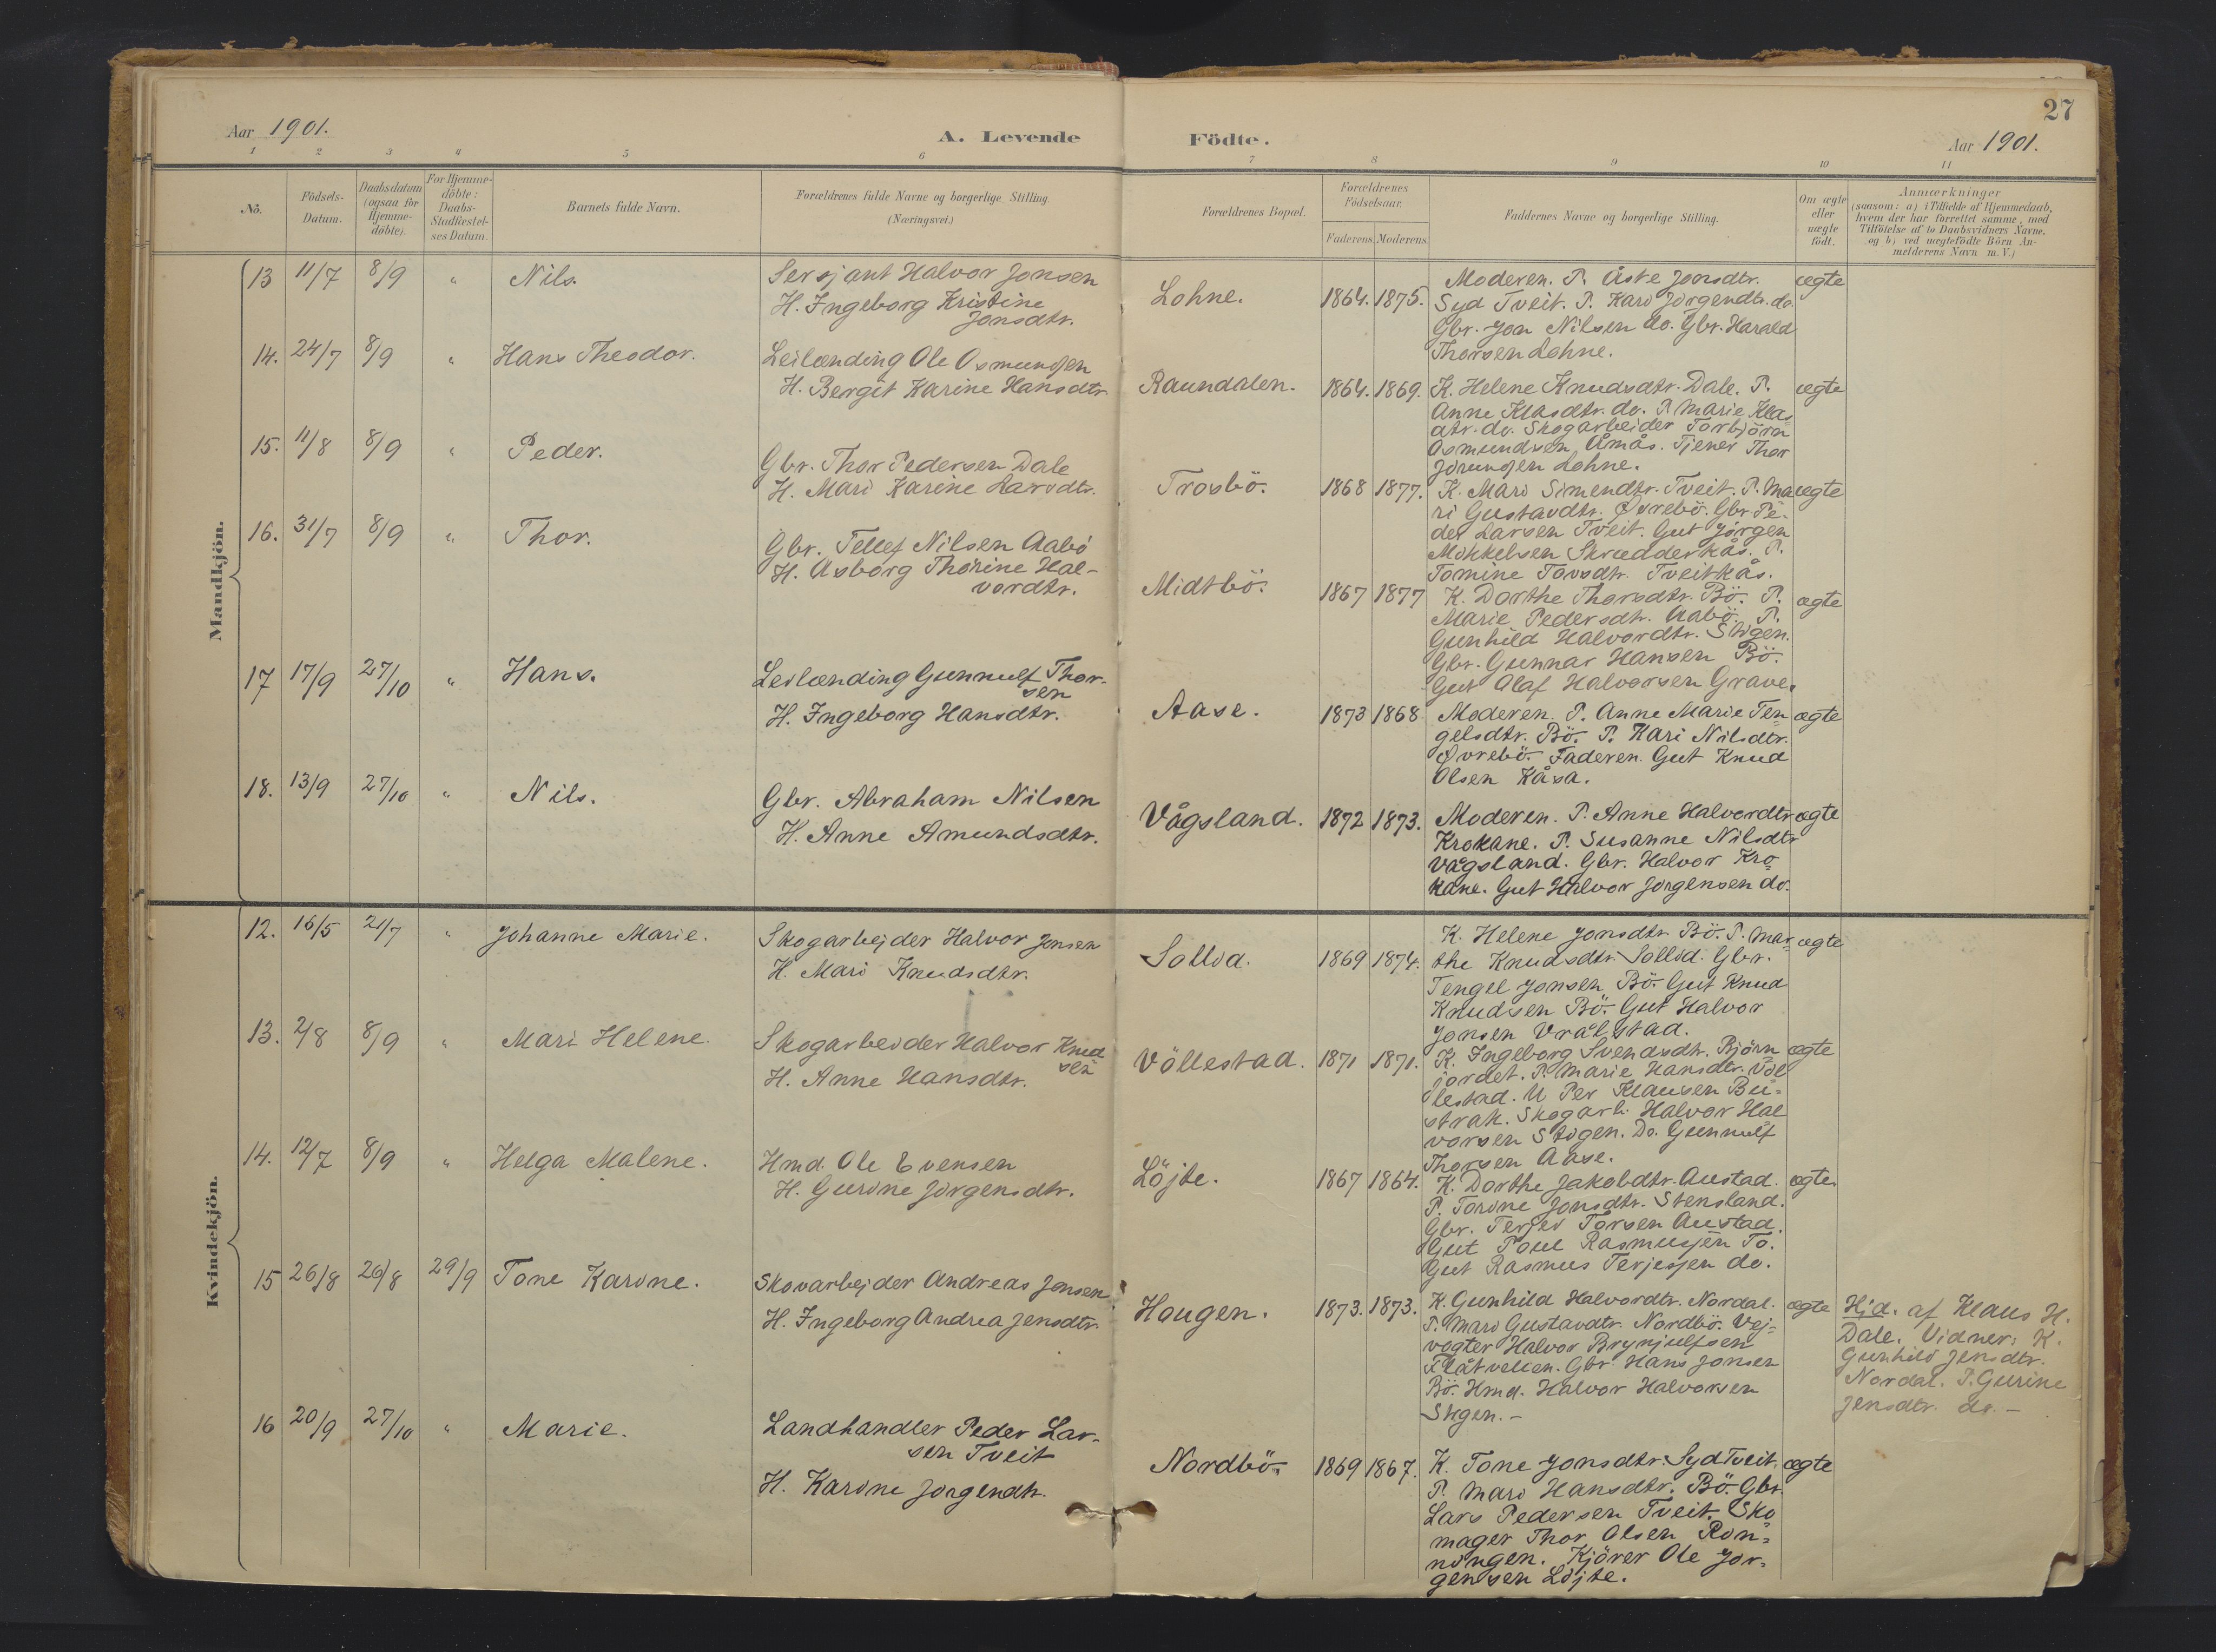 27
Aar 1901.
A. Levende Födte.
Aar 1901.
1 2 3 4 5 6 7 8 9 10 11
No.
Födsels-Datum.
Daabsdatum (ogsaa for Hjemme-döbte).
For Hjemme-döbte: Daabs-Stadfæstel-ses Datum.
Barnets fulde Navn.
Forældrenes fulde Navne og borgerlige Stilling.
(Næringsvei.)
Forældrenes Bopæl.
Forældrenes Födselsaar.
Faderens. Moderens.
Faddernes Navne og borgerlige Stilling.
Om ægte eller uægte födt.
Anmærkninger
(saasom: a) i Tilfælde af Hjemmedaab,
hvem der har forrettet samme, med
Tilföielse af to Daabsvidners Navne.
og b) ved uægtefödte Börn An-
melderens Navn m. V.)
Mandkjön.
13 11/7 8/9 " Nils.
Sersjant Halvor Jonsen
H. Ingeborg Kristine
Jonsdtr.
Lohne. 1864. 1875.
Moderen. P. Åste Jonsdtr. ægte
Syd Tveit. P. Kari Jörgendtr. do.
Gbr. Jon Nilsen do. Gbr. Harald
Thorsen Lohne.
14. 24/7 8/9 " Hans Theodor.
Leilænding Ole Osmundsen
H. Bergit Karine Hansdtr.
Raundalen. 1864. 1869.
K. Helene Knudsdtr. Dale. P. ægte
Anne Klasdtr. do. P. Marie Klas
dtr. do. Skogarbeider Torbjörn
Osmundsen Åmås. Tjener Thor
Jörundsen Lohne.
15. 11/8 8/9 " Peder.
Gbr. Thor Pedersen Dale
H. Mari Karine Larsdtr.
Trosbö. 1868 1877.
K. Mari Simendtr. Tveit. P. Ma ægte
ri Gustavdtr. Övrebö. Gbr. Pe-
der Larsen Tveit. Gut Jörgen
Mikkelsen Skrædderkås. P.
Tomine Tovsdtr. Tveitkås.
16. 31/7 8/9 " Thor.
Gbr. Tellef Nilsen Aabö
H. Asborg Thorine Hal-
vordtr.
Midtbö. 1867 1877
K. Dorthe Thorsdtr. Bö. P. ægte
Marie Pedersdtr. Aabö. P.
Gunhild Halvordtr. Stigen.
Gbr. Gunnar Hansen Bö.
Gut Olaf Halvorsen Grave.
17 17/9 27/10 " Hans.
Leilænding Gunnulf Thor-
sen
H. Ingeborg Hansdtr.
Aase. 1873 1868
Moderen. P. Anne Marie Ten- ægte
gelsdtr. Bö. P. Kari Nilsdtr.
Övrebö. Faderen. Gut Knud
Olsen Kåsa.
18. 13/9 27/10 " Nils.
Gbr. Abraham Nilsen
H. Anne Amundsdtr.
Vågsland. 1872 1873.
Moderen. P. Anne Halvordtr ægte
Krokane. P. Susanne Nilsdtr
Vågsland. Gbr. Halvor Kro-
kane. Gut Halvor Jörgensen do.
Kvindekjön.
12. 16/5 21/7 " Johanne Marie.
Skogarbejder Halvor Jonsen
H. Mari Knudsdtr.
Sollid. 1869 1874.
K. Helene Jonsdtr Bö. P. Mar- ægte
the Knudsdtr. Sollid. Gbr.
Tengel Jonsen Bö. Gut Knud
Knudsen Bö. Gut Halvor
Jonsen Vrålstad.
13. 2/8 8/9 " Mari Helene.
Skogarbeider Halvor Knud
sen
H. Anne Hansdtr.
Völlestad. 1871 1871.
K. Ingeborg Svendsdtr. Björn ægte
jordet. P. Marie Hansdtr. Völ
lestad. U Per Klausen Bu-
strak. Skogarb. Halvor Hal
vorsen Stigen. Do. Gunnulf
Thorsen Aase.
14. 12/7 8/9 " Helga Malene.
Hmd. Ole Evensen
H. Gurine Jörgensdtr.
Löjte. 1867 1864.
K. Dorthe Jakobdtr. Austad. ægte
P. Torine Jonsdtr. Stensland.
Gbr. Terjei Torsen Austad.
Gut Poul Rasmussen To.
Gut Rasmus Terjesjen do.
15 26/8 26/8 29/9 Tone Karine.
Skovarbejder Andreas Jensen
H. Ingeborg Andrea Jensdtr.
Haugen. 1873. 1873.
K. Gunhild Halvordtr. Nordal. ægte
P. Mari Gustavdtr. Nordbö. Vej-
vogter Halvor Brynjulfsen
Flåtvelten. Gbr. Hans Jonsen
Bö. Hmd. Halvor Halvorsen
Stigen. -
Hjd. af Klaus H.
Dale. Vidner: K.
Gunhild Jensdtr.
Nordal. P. Gurine
Jensdtr. do. -
16 20/9 27/10 " Marie.
Landhandler Peder Lar-
sen Tveit
H. Karine Jörgendtr.
Nordbö. 1869 1867.
K. Tone Jonsdtr. Syd Tveit. ægte
P. Mari Hansdtr. Bö. Gbr.
Lars Pedersen Tveit. Sko
mager Thor Olsen Rön-
ningen. Kjörer Ole Jör-
gensen Löjte.